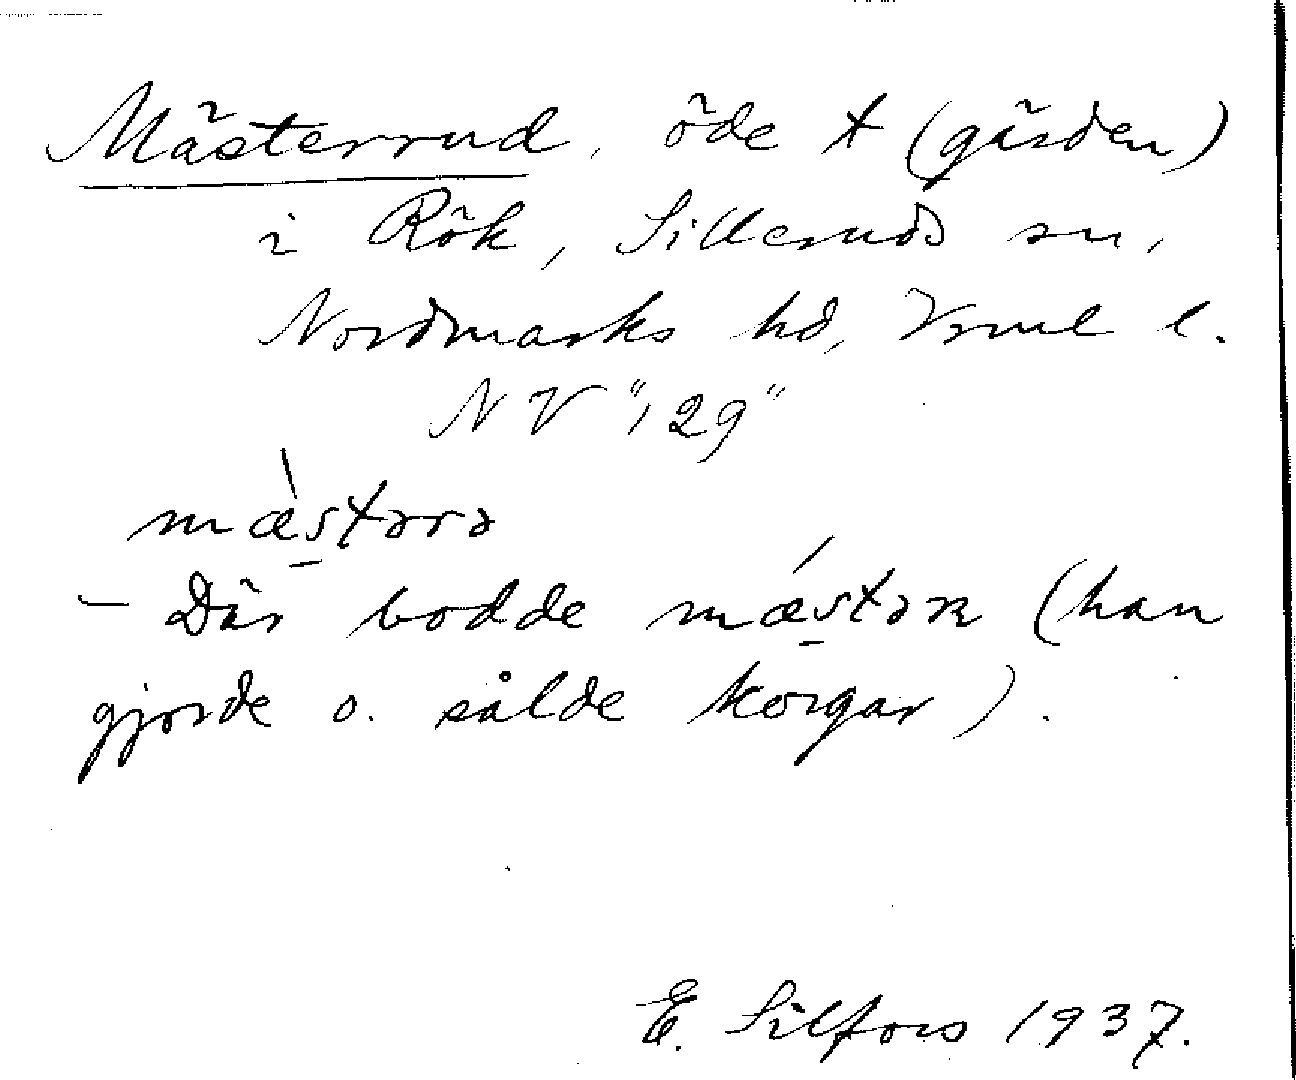 Mästerrud, öde t (gården)
i Rök, Silleruds sn,
Nordmarks hd, Vrml l.
NV "129"
mæ̀stərə
– Där bodde mǽstəʀ (han
gjorde o. sålde korgar).
E. Silfors 1937.